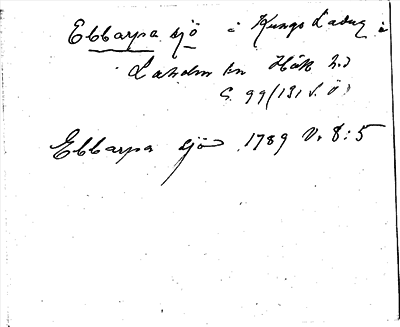 Ebbarpa sjö i Kungs Ladug i
Laholm ln Hök h.)
S. 99 (131 S. Ö)
Ebbarpa sjö 1789 V. 8:5